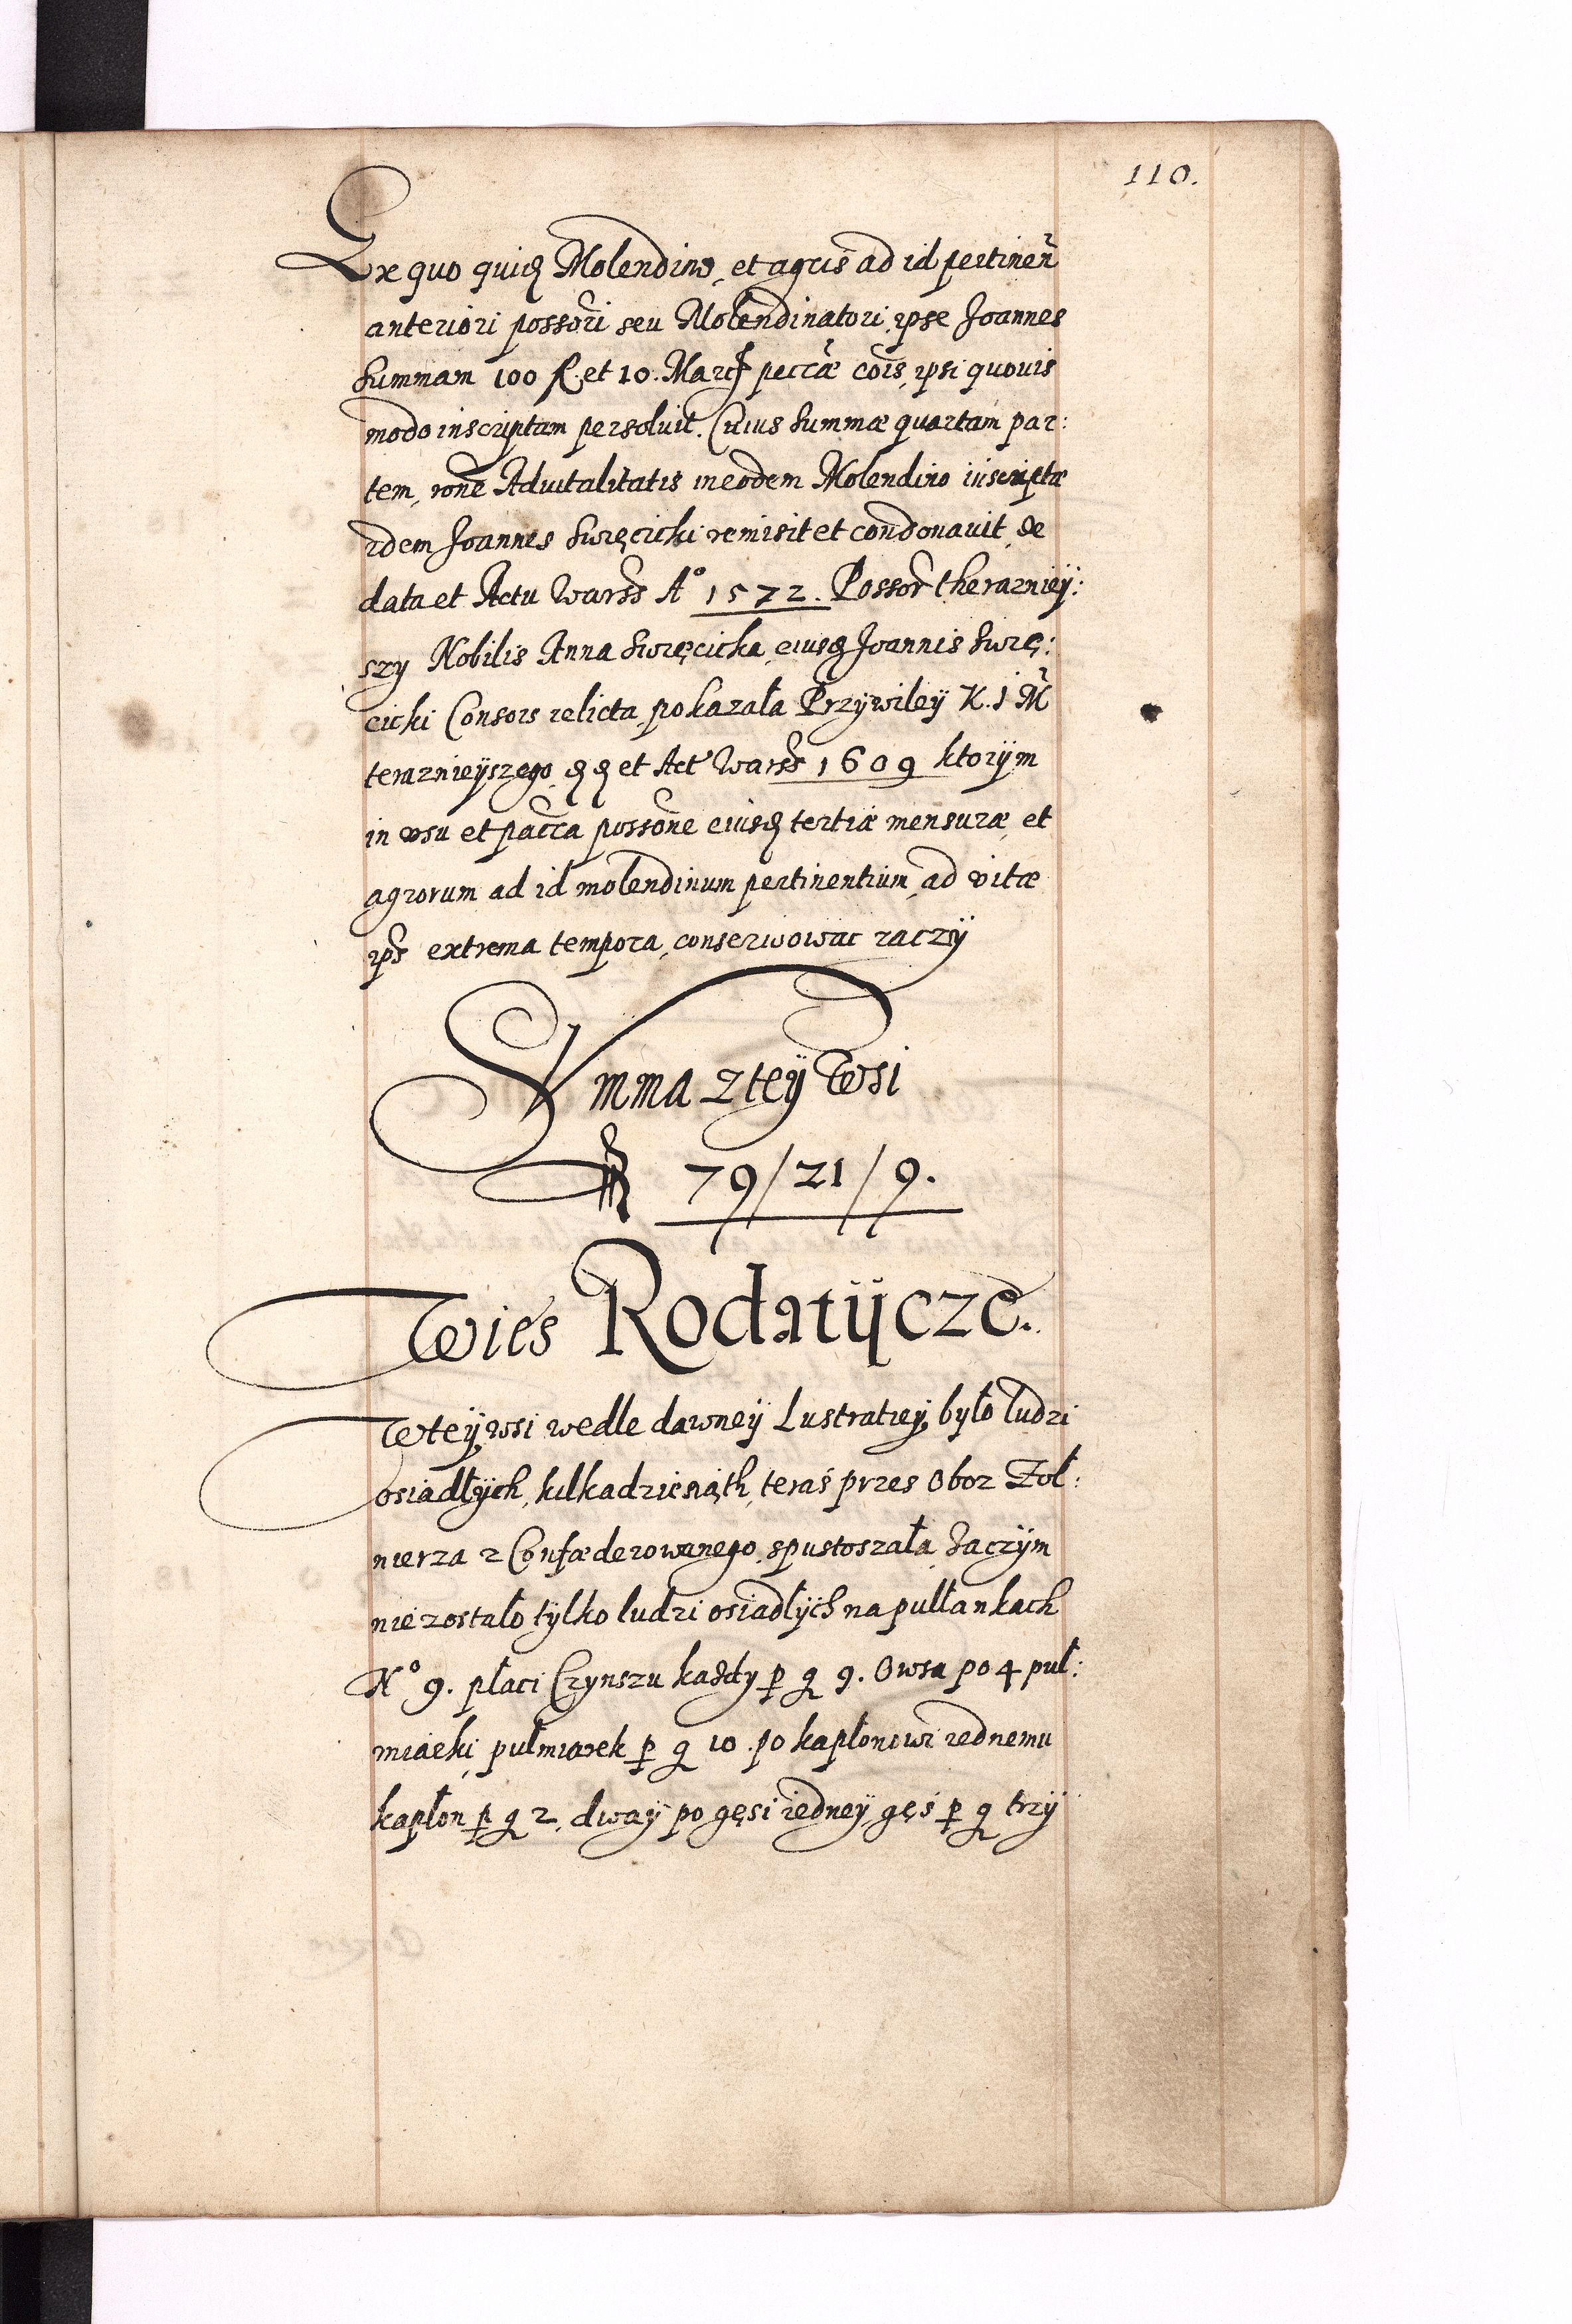 110.
Ex quo quidē Molendino, et agris ad id pertineñ
anteriori possōri seu Molendinatori, ipse Joannes
Summam 100 fl. et 10. Marcę peccæ cōis, ipsi quovis
modo inscriptam persoluit. Cuius Summæ quartam par:
tem, rone Aduitalitatis in eodem Molendino inscriptæ
idem Joannes Swręcicki remisit et condonauit, de
data et Actu Warss Aº 1572. Possor therazniey:
szy Nobilis Anna Swręcicka, eiusd Joannis Swrę:
cicki Consors relicta, pokazała Przywileÿ K. J M
teraznieÿszego, dd et Act Warss 1609 ktorÿm
in vsu et pacca possone eiusd tertiæ mensuræ, et
agrorum ad id molendinum pertinentium, ad vitæ
ips extrema tempora, conserwowac raczÿ
Summa z teÿ Wsi
fl 79/21/9.
Wies Rodatÿcze.
W teÿ wsi wedle dawneÿ Lustratieÿ, było ludzi
osiadłÿch, kilkadziesiąth, teraś przes Oboz Zoł:
nierza z Confæderowanego, spustoszała, Zaczÿm
nie zostało tÿlko ludzi osiadłÿch na pułłankach
Nº 9. płaci Czynszu kaźdy p g 9. Owsa po 4 puł:
miarki, pułmiarek p g 10. po kapłonowi iednemu
kapłon p g 2, dwaÿ po gęsi iedneÿ, gęś p g trzÿ